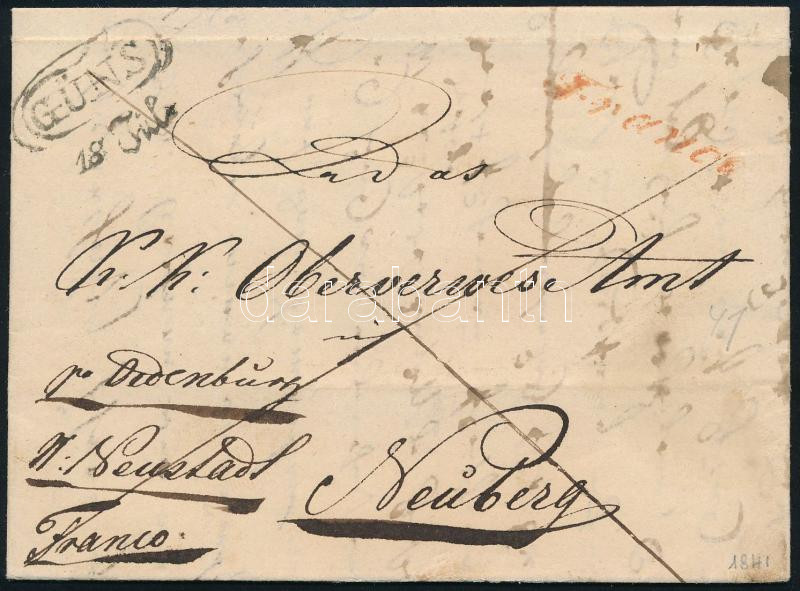 GÜNS
18 Jul.
Franco
An das
K: K: Oberverwes Amt
in
pr Oedenburg
W: Neustadt
Neuberg
Franco
darabanth
1841